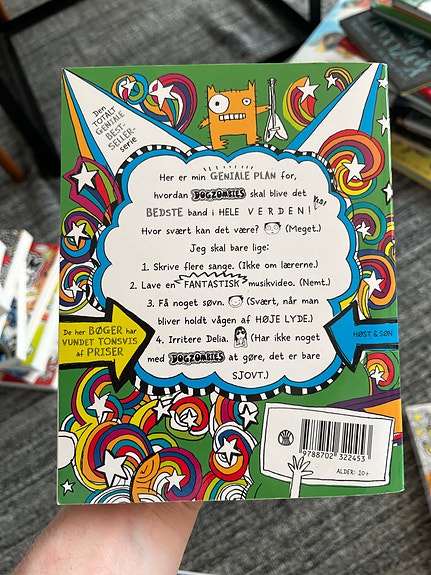 Den
TOTALT
GENIALE
BEST-
SELLER-
serie
Her er min GENIALE PLAN for,
hvordan DOGZOMBIES skal blive det
BEDSTE band i HELE VERDEN!
Hvor svært kan det være? (Meget.)
Jeg skal bare lige:
1. Skrive flere sange. (Ikke om lærerne.)
2. Lave en FANTASTISK musikvideo. (Nemt.)
3. Få noget søvn. (Svært, når man
bliver holdt vågen af HØJE LYDE.)
4. Irritere Delia. (Har ikke noget
med DOGZOMBIES at gøre, det er bare
SJOVT.)
De her BØGER har
VUNDET TONSVIS
af PRISER
HØST & SØN
9788702 322453
ALDER: 10+